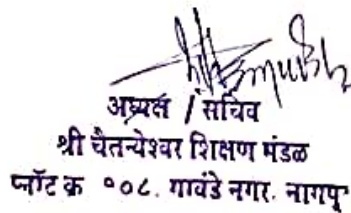 अध्यक्ष / सचिव
श्री चैतन्येश्वर शिक्षण मंडळ
प्लॉट क्र १०८. गावंडे नगर. नागपू